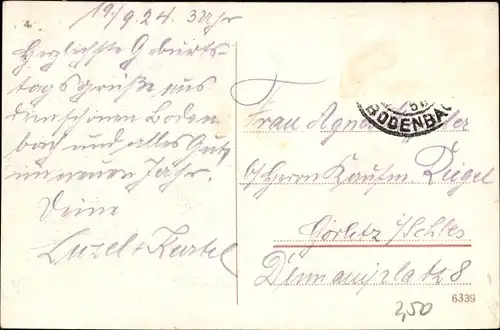 19/9 24. 3 Uhr
Herzlichste Geburts-
tagsgrüße aus
dem schönen Boden
bach und alles Gute
im neuen Jahr.
Deine
Luzel + Kurtel
BODENBA
Frau Agnes
b/ Herrn Kaufm. Riegel
Görlitz i/Schles
Demianiplatz 8
6339
2,50